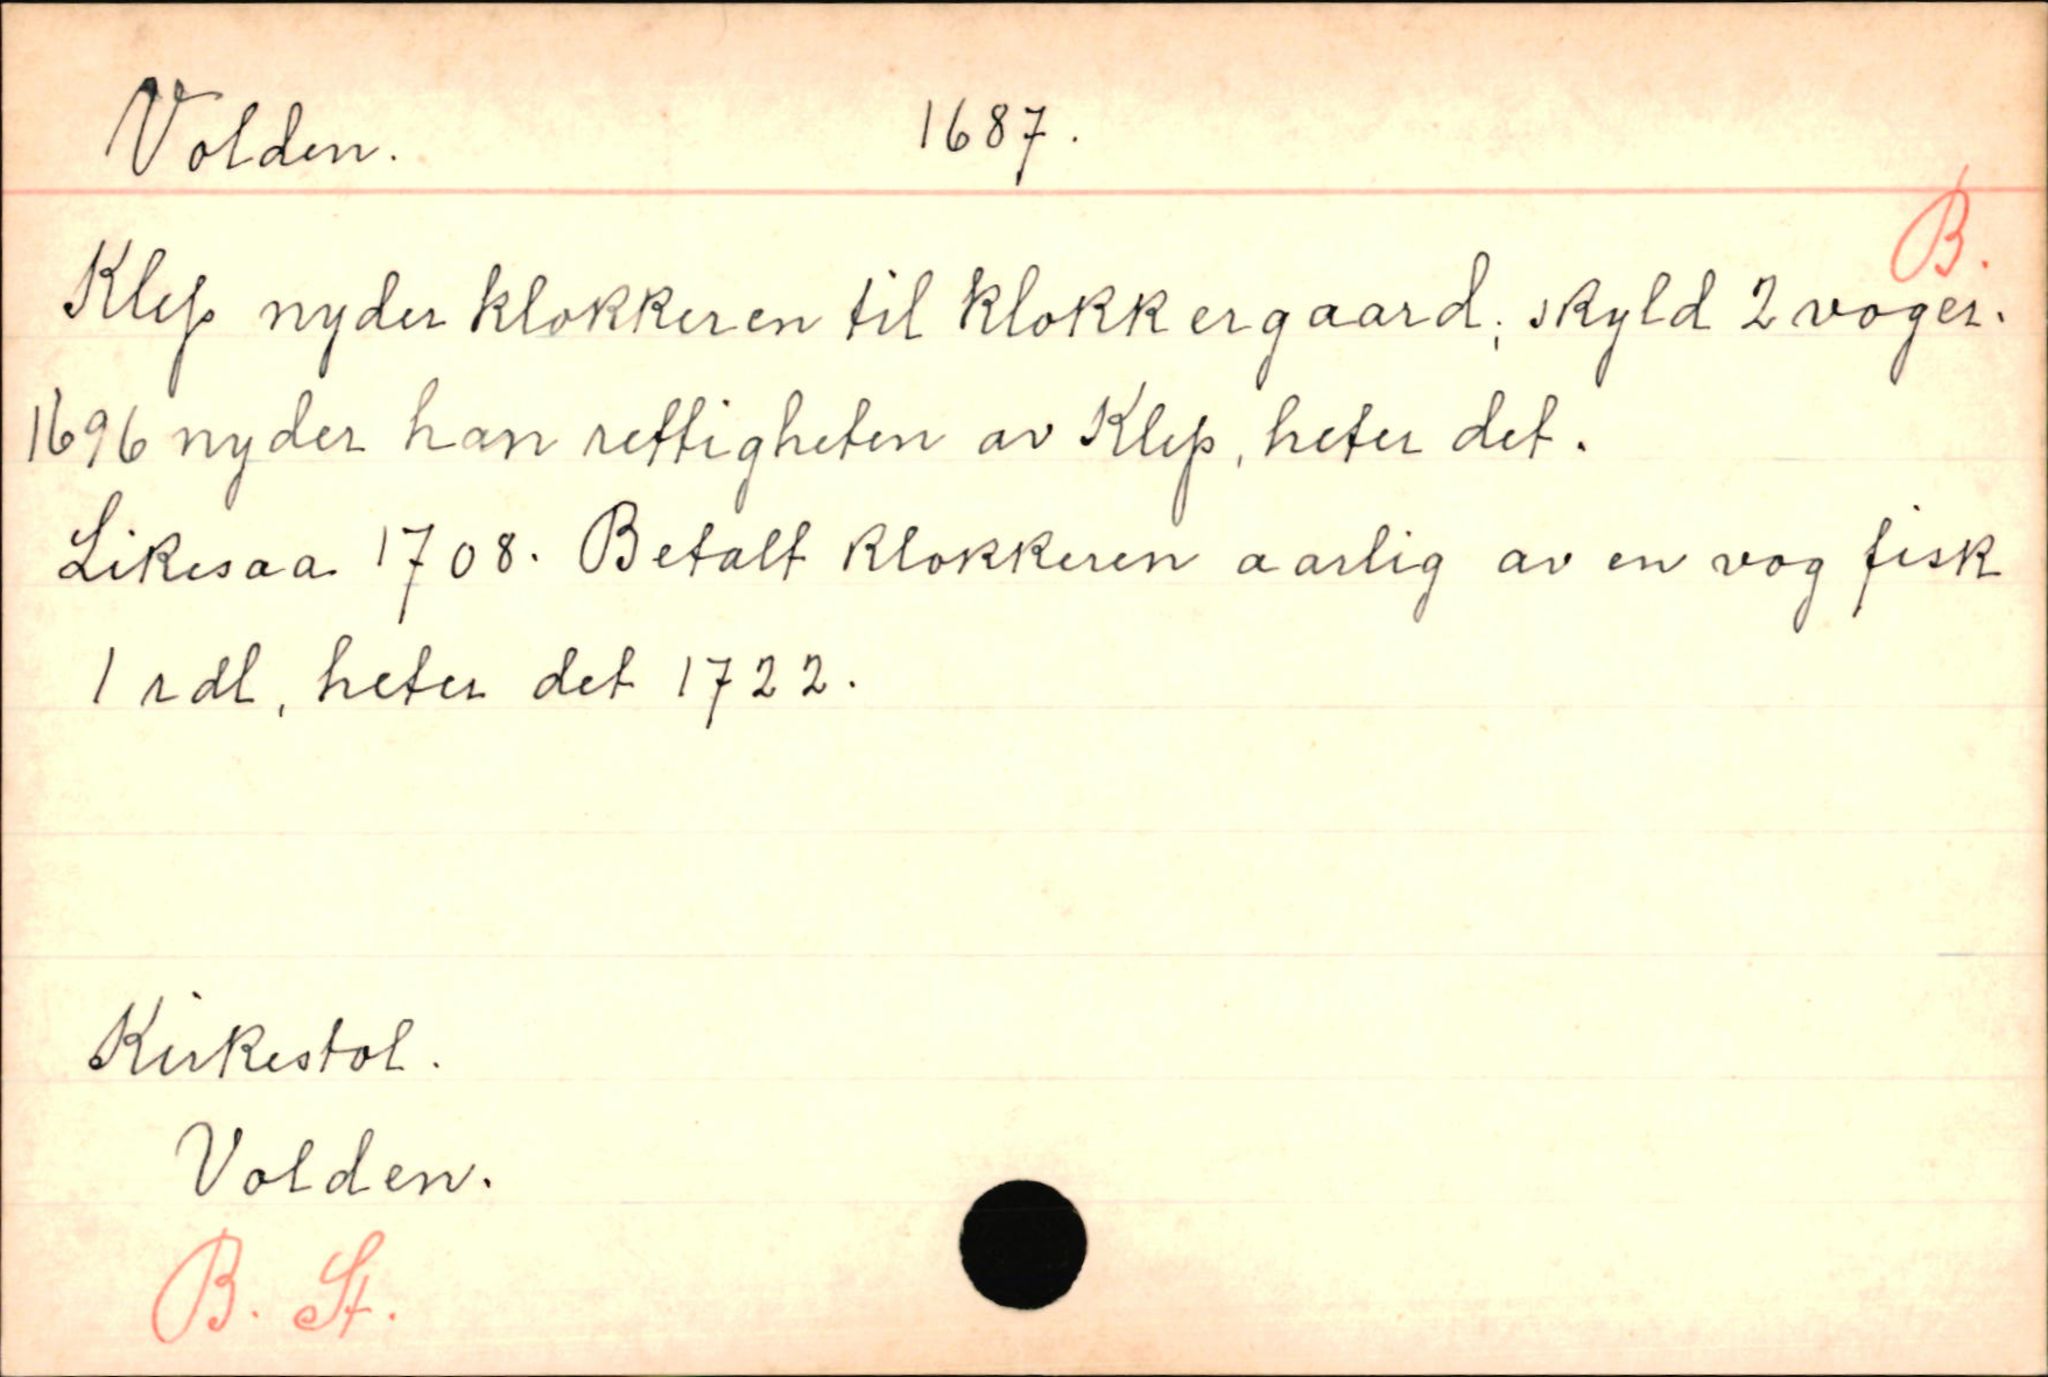 Volden. 1687.
B.
Klep nyder klokkeren til klokkergaard; skyld 2 voger.
1696 nyder han rettigheten av Klep, heter det.
Likesaa 1708. Betalt klokkeren aarlig av en vog fisk
1 rdl, heter det 1722.
Kirkestol.
Volden.
B. St.